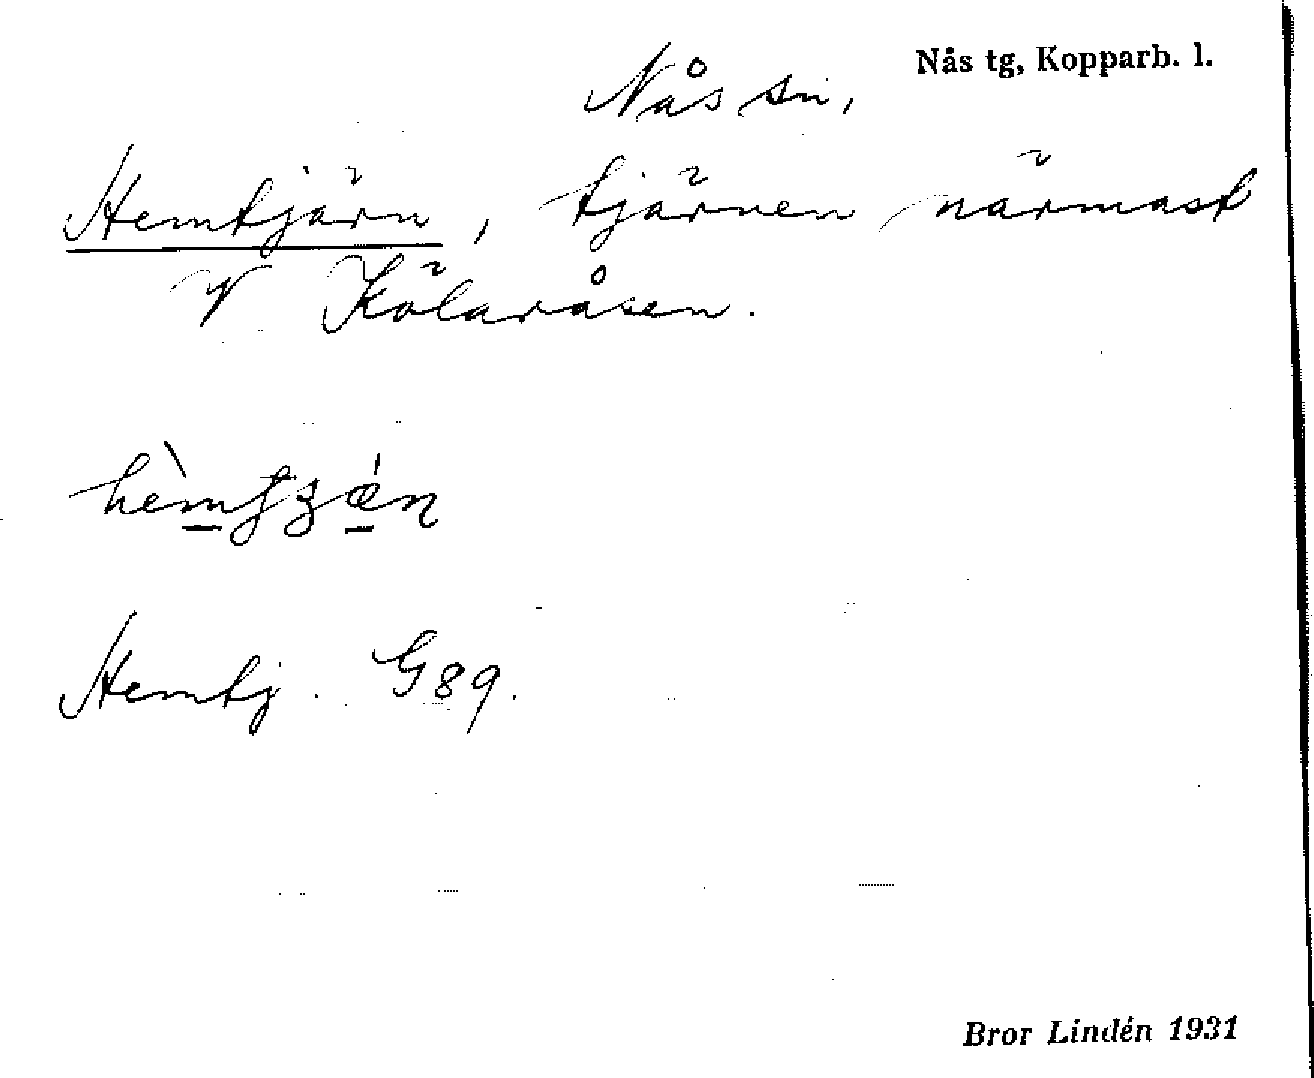 Nås tg, Kopparb. l.
Nås sn,
Hemtjärn, tjärnen närmast
V Kölaråsen.
Hemtj. G89.
Bror Lindén 1931